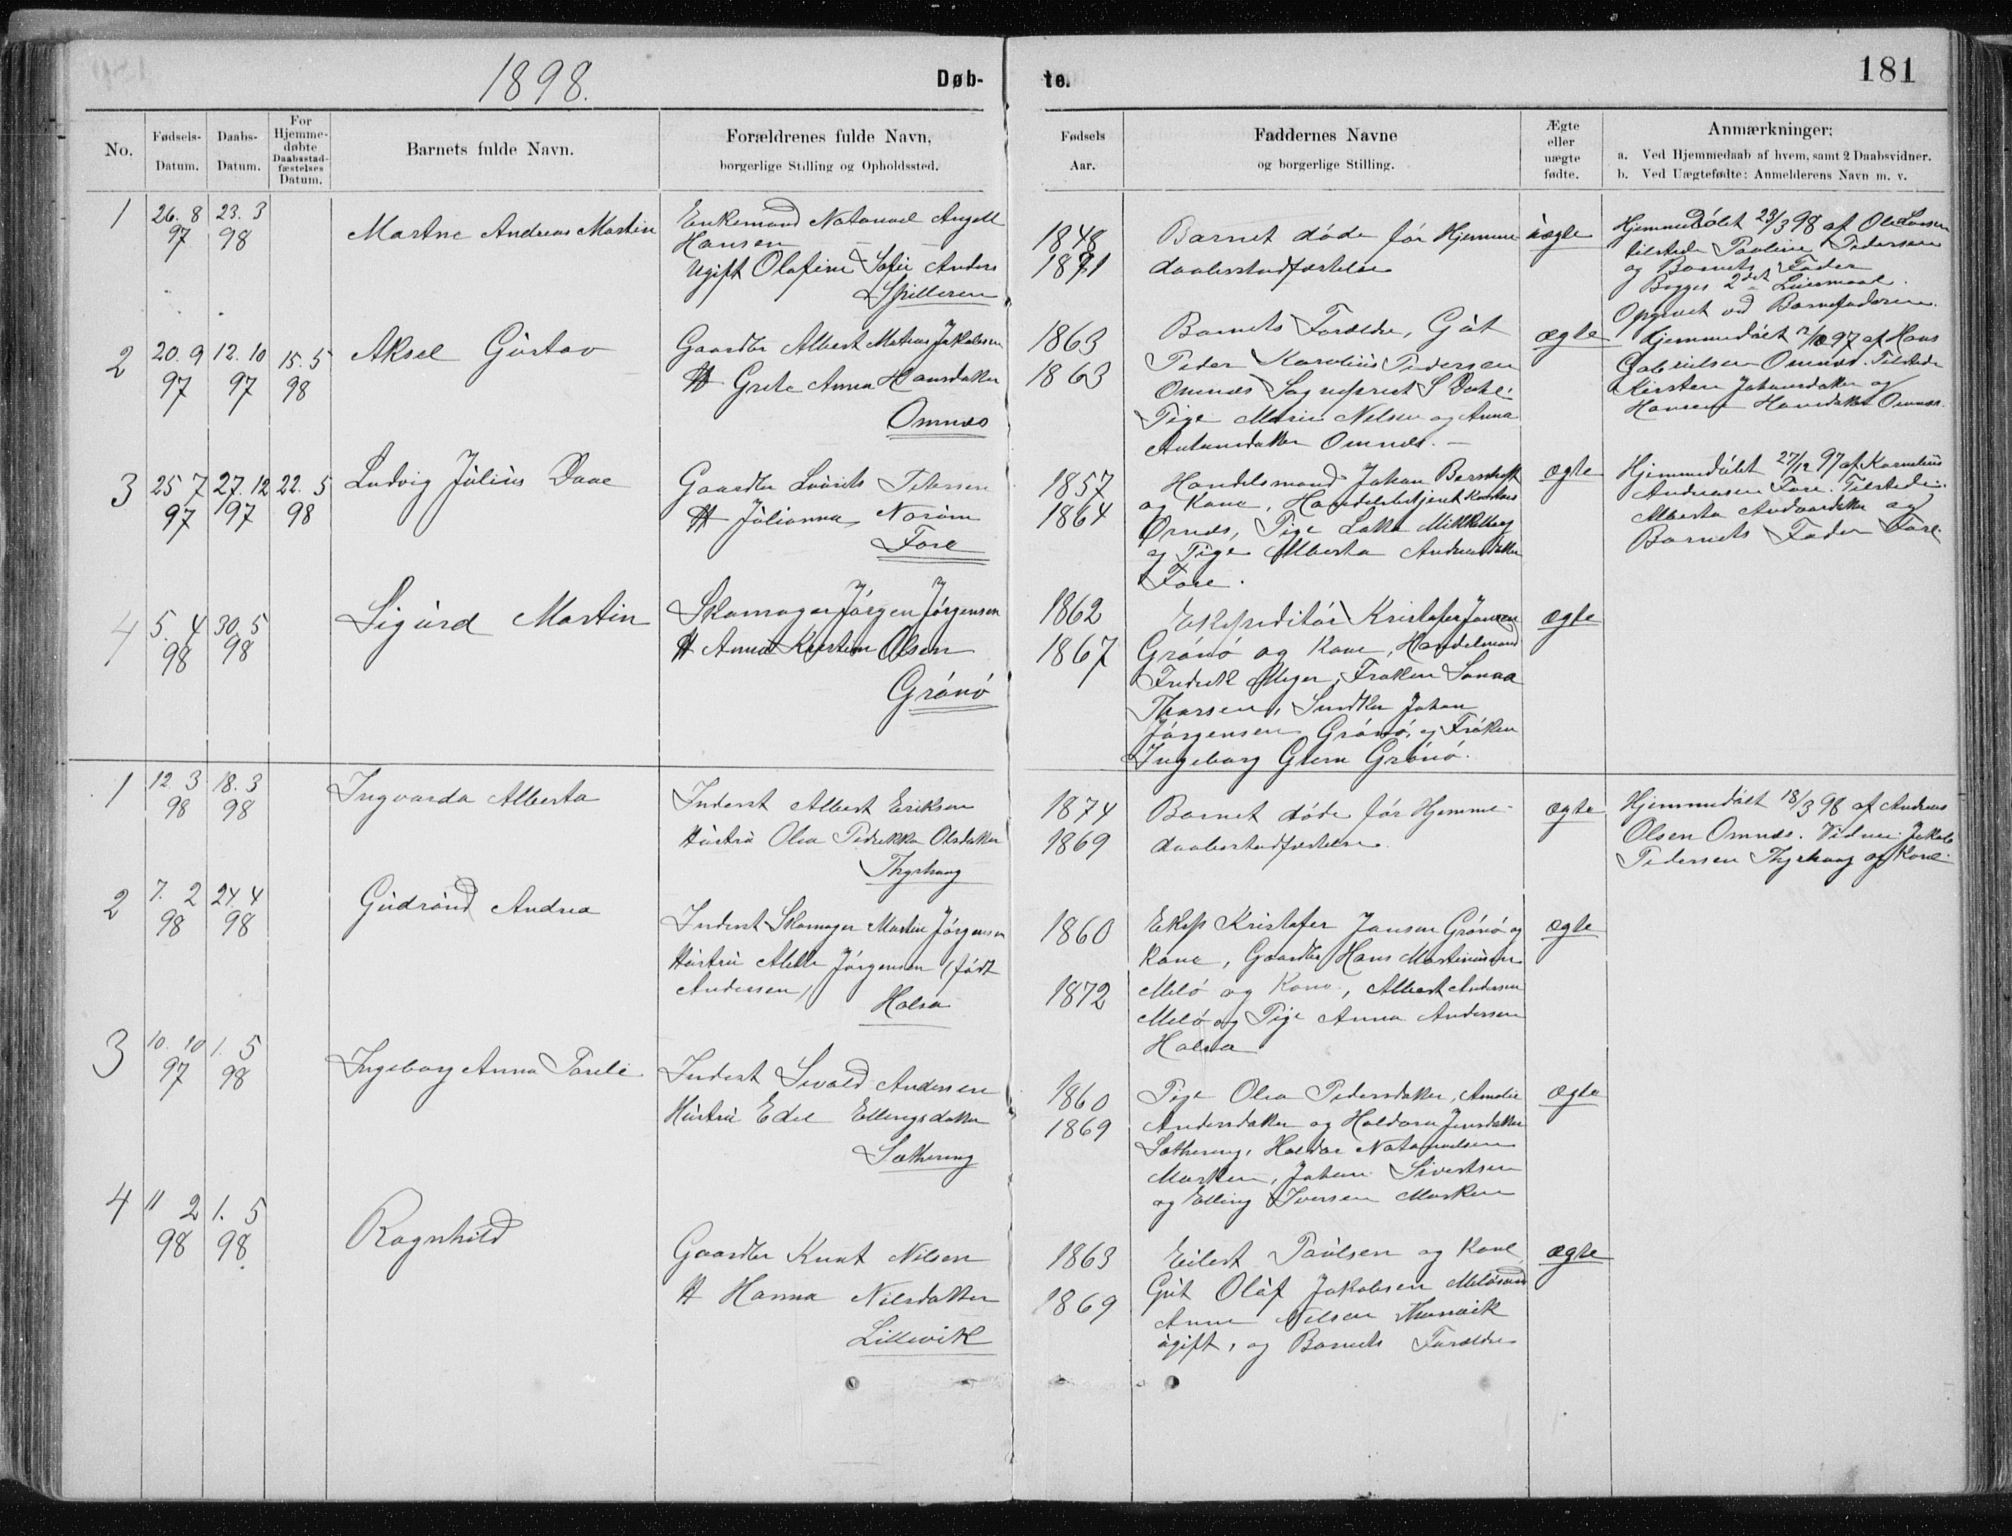 1898.
Døb-
te.
181
No.
Fødsels-
Datum.
Daabs-
Datum.
For
Hjemme-
døbte
Daabsstad-
fæstelses
Datum.
Barnets fulde Navn.
Forældrenes fulde Navn,
borgerlige Stilling og Opholdssted.
Fødsels
Aar.
Faddernes Navne
og borgerlige Stilling.
Ægte
eller
uægte
fødte.
Anmærkninger:
a. Ved Hjemmedaab af hvem, samt 2 Daabsvidner.
b. Ved Uægtefødte: Anmelderens Navn m. v.
1
26. 8
97
23. 3
98
Andreas Martin
Enkemand Natanael Angell
Hansen
Ugift Olafine Sofie Anders
Spilleren
1848
1871
Barnet døde før Hjemme
daabsstadfæstelse
uægte
Hjemmedøbt 23/3 98 af Ole Larsen
tilstede Pauline Pedersen
og Barnets Fader
Begges 2det Leiermaal.
Opgivet ved Barnefaderen.
2
20. 9
97
12. 10
97
15. 5
98
Aksel Gustav
Gaardbr Albert Mateas Jakobsen
H Grete Anna Hansdatter
Omnæs
1863
1863
Barnets Forældre, Gut
Peder Karolius Pedersen
Omnæs
Pige Marie Nilsen og Anna
Antonsdatter Omnæs. —
ægte
Hjemmedøbt 12/10 97 af Hans
Gabrielsen Omnæs. Tilstede
Kirsten Johansdatter og
Hansine Hansdatter Omnæs.
3
25 7
97
27. 12
97
22. 5
98
Ludvig Julius Daae
Gaardbr Lourits Petersen
H Julianna Norum
Fore
1857
1864
Handelsmand Johan Bernhoft
og Kone, Handelsbetjent
Ørnes, Pige
og Pige Alberta Andreasdatter
Fore.
ægte
Hjemmedøbt 27/12 97 af Kornelius
Andreasen Fore. Tilstede:
Alberta og
Barnets Fader Fore
4
5. 4
98
30. 5
98
Sigurd Martin
Skomager Jørgen Jørgensen
H Anna Kristine Olsen
Grønø
1862
1867
Ekspeditør Kristofer Jansen
Grønø og Kone, Handelsmand
Fredrik Meyer, Frøken Sanna
Thorsen, Snedker Johan
Jørgensen Grønø, og Frøken
Ingeborg Grønø.
ægte
1
12 3
98
18. 3
98
Ingvarda Alberta
Inderst Albert Eriksen
Hustru Olea Pedrikka Olsdatter
1874
1869
Barnet døde før Hjemme-
daabsstadfæstelse.
ægte
Hjemmedøbt 18/3 98 af Andreas
Olsen Omnæs. Vidner: Jakob
Pedersen og Kone.
2
7. 2
98
24. 4
98
Gudrund Andrea
Inderst Skomager Martin Jørgensen
Hustru Jørgensen (født
Andersen)
Halsa
1860
1872
Eksp Kristofer Jansen Grønø og
Kone, Gaardbr Hans Martinusen
Melø og Kone, Albert Andersen
Melø og Pige Anna Andersen
Halsa
ægte
3
10. 10
97
1. 5
98
Ingeborg Anna
Inderst Sivald Andersen
Hustru Edel Ellingsdatter
Sætvreng
1860
1869
Pige Olea Pedersdatter, Amalie
Andersdatter og Haldora Jensdatter
Haldor Natanaelsen
Marken, Johan Sivertsen
og Elling Iversen Marken
ægte
4
11 2
98
1. 5
98
Ragnhild
Gaardbr Knut Nilsen
H Hanna Nilsdatter
Lillevik
1863
1869
Eilert Paulsen og Kone
Gut Olaf Jakobsen Meløsund
Anne Nilsen
ugift, og Barnets Forældre
ægte